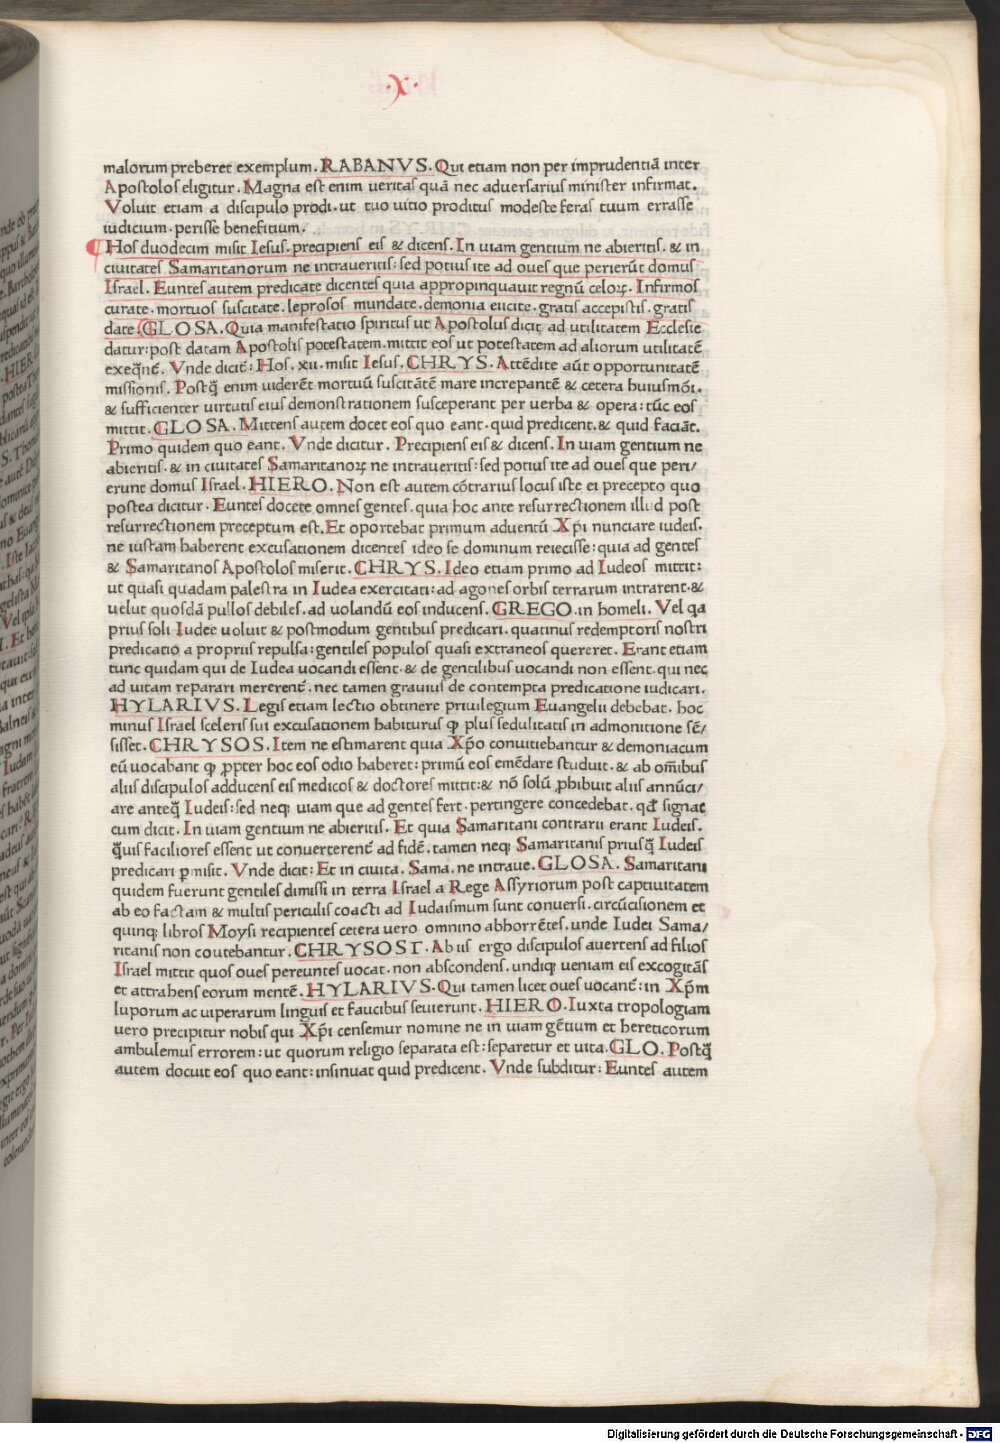 ·X·
malorum preberet exemplum. RABANVS. Qui etiam non per imprudentiā inter
Apostolos eligitur. Magna est enim ueritas quā nec aduersarius minister infirmat.
Voluit etiam a discipulo prodi. ut tuo uitio proditus modeste feras tuum errasse
iudicium. perisse beneficium.
Hos duodecim misit Iesus. precipiens eis & dicens. In uiam gentium ne abieritis. & in
ciuitates Samaritanorum ne intraueritis: sed potius ite ad oues que perierūt domus
Israel. Euntes autem predicate dicentes quia appropinquauit regnū celoꝝ. Infirmos
curate. mortuos suscitate. leprosos mundate. demonia eiicite. gratis accepistis. gratis
date. GLOSA. Quia manifestatio spiritus ut Apostolus dicit ad utilitatem Ecclesie
datur: post datam Apostolis potestatem. mittit eos ut potestatem ad aliorum utilitatē
exeq̄nt̄. Vnde dicit: Hos. xii. misit Iesus. CHRYS. Attēdite aūt opportunitatē
missionis. Postq̄ enim uiderēt mortuū suscitātē mare increpantē & cetera huiusmōi.
& sufficienter uirtutis eius demonstrationem susceperant per uerba & opera: tūc eos
mittit. GLOSA. Mittens autem docet eos quo eant. quid predicent. & quid faciāt.
Primo quidem quo eant. Vnde dicitur. Precipiens eis & dicens. In uiam gentium ne
abieritis. & in ciuitates Samaritanoꝝ ne intraueritis: sed potius ite ad oues que peri/
erunt domus Israel. HIERO. Non est autem cōtrarius locus iste ei precepto quo
postea dicitur. Euntes docete omnes gentes. quia hoc ante resurrectionem illud post
resurrectionem preceptum est. Et oportebat primum aduentū Xp̄i nunciare iudeis.
ne iustam haberent excusationem dicentes ideo se dominum reiecisse: quia ad gentes
& Samaritanos Apostolos miserit. CHRYS. Ideo etiam primo ad Iudeos mittit:
ut quasi quadam palestra in Iudea exercitati: ad agones orbis terrarum intrarent. &
uelut quosdā pullos debiles. ad uolandū eos inducens. GREGO. in homeli. Vel qa
prius soli Iudee uoluit & postmodum gentibus predicari. quatinus redemptoris nostri
predicatio a propriis repulsa: gentiles populos quasi extraneos quereret. Erant etiam
tunc quidam qui de Iudea uocandi essent. & de gentilibus uocandi non essent. qui nec
ad uitam reparari mererent̄. nec tamen grauius de contempta predicatione iudicari.
HYLARIVS. Legis etiam lectio obtinere priuilegium Euangelii debebat. hoc
minus Israel sceleris sui excusationem habiturus ꝙ plus sedulitatis in admonitione sē/
sisset. CHRYSOS. Item ne estimarent quia Xp̄o conuitiebantur & demoniacum
eū uocabant ꝙ ꝓpter hoc eos odio haberet: primū eos emēdare studuit. & ab om̄ibus
aliis discipulos adducens eis medicos & doctores mittit: & nō solū ꝓhibuit aliis annūci/
are anteq̄ Iudeis: sed neqꝫ uiam que ad gentes fert. pertingere concedebat. qd̄ signat
cum dicit. In uiam gentium ne abieritis. Et quia Samaritani contrarii erant Iudeis.
q̄uis faciliores essent ut conuerterent̄ ad fidē. tamen neqꝫ Samaritanis priusq̄ Iudeis
predicari ꝑmisit. Vnde dicit: Et in ciuita. Sama. ne intraue. GLOSA. Samaritani
quidem fuerunt gentiles dimissi in terra Israel a Rege Assyriorum post captiuitatem
ab eo factam & multis periculis coacti ad Iudaismum sunt conuersi. circūcisionem et
quinqꝫ libros Moysi recipientes cetera uero omnino abhorrētes. unde Iudei Sama/
ritanis non coutebantur. CHRYSOST. Ab iis ergo discipulos auertens ad filios
Israel mittit quos oues pereuntes uocat. non abscondens. undiqꝫ ueniam eis excogitās
et attrahens eorum mentē. HYLARIVS. Qui tamen licet oues uocant̄: in Xp̄m
luporum ac uiperarum linguis et faucibus seuierunt. HIERO. Iuxta tropologiam
uero precipitur nobis qui Xp̄i censemur nomine ne in uiam gētium et hereticorum
ambulemus errorem: ut quorum religio separata est: separetur et uita. GLO. Postq̄
autem docuit eos quo eant: insinuat quid predicent. Vnde subditur: Euntes autem
Digitalisierung gefördert durch die Deutsche Forschungsgemeinschaft - DFG